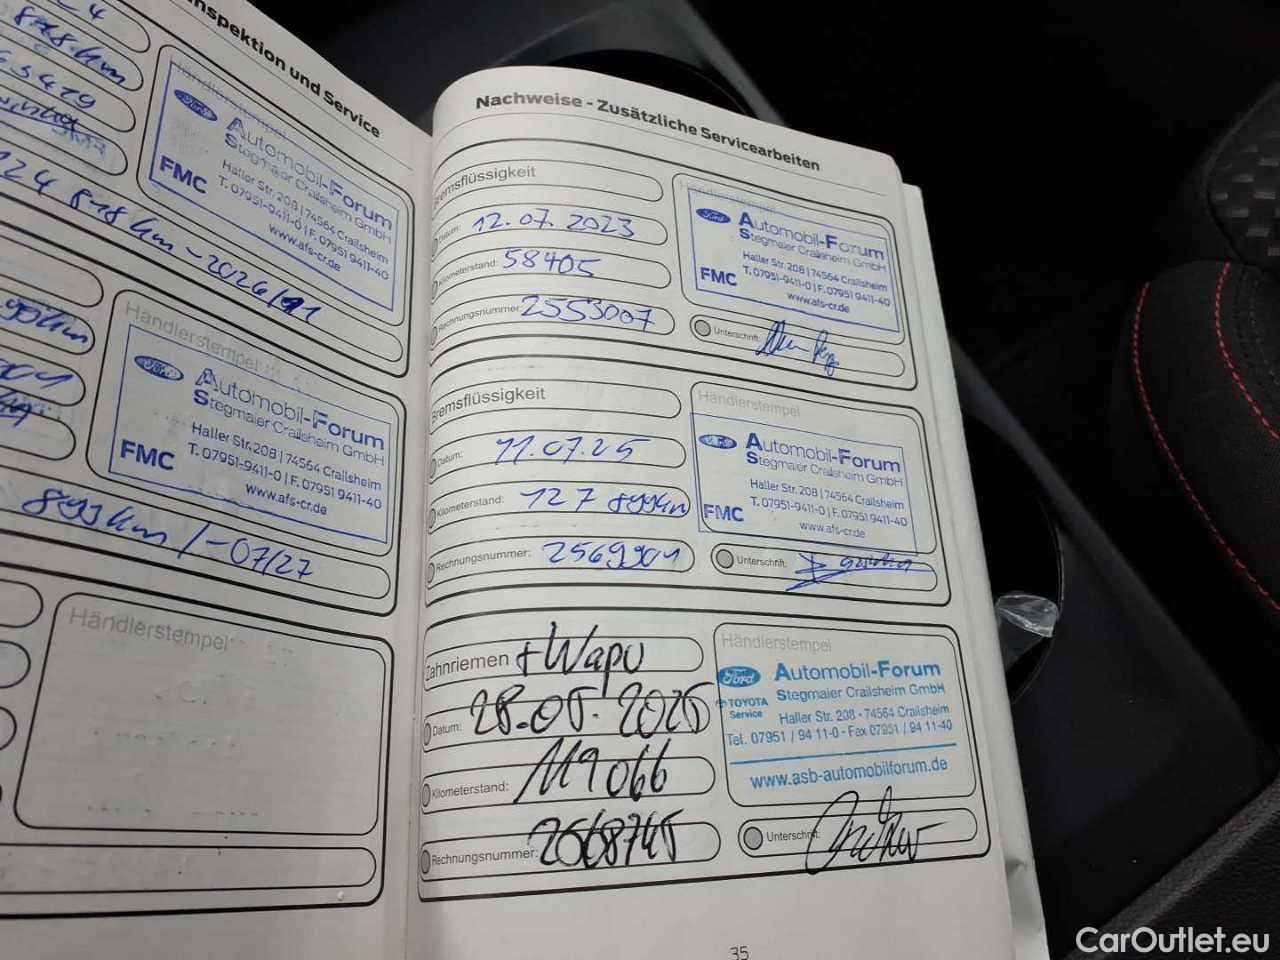 Inspektion und Service
Händlerstempel
Ford
Automobil-Forum
Stegmaier Crailsheim GmbH
FMC
Haller Str. 208 | 74564 Crailsheim
T. 07951-9411-0 | F. 07951 9411-40
www.afs-cr.de
Händlerstempel
Ford
Automobil-Forum
Stegmaier Crailsheim GmbH
FMC
Haller Str. 208 | 74564 Crailsheim
T. 07951-9411-0 | F. 07951 9411-40
www.afs-cr.de
07/27
Händlerstempel
Nachweise - Zusätzliche Servicearbeiten
Bremsflüssigkeit
Datum: 12.07.2023
Kilometerstand: 58405
Rechnungsnummer: 2553007
Händlerstempel
Ford
Automobil-Forum
Stegmaier Crailsheim GmbH
FMC
Haller Str. 208 | 74564 Crailsheim
T. 07951-9411-0 | F. 07951 9411-40
www.afs-cr.de
Unterschrift:
Bremsflüssigkeit
Datum: 11.07.25
Kilometerstand: 127 899km
Rechnungsnummer: 2569901
Händlerstempel
Automobil-Forum
Stegmaier Crailsheim GmbH
FMC
Haller Str. 208 | 74564 Crailsheim
T. 07951-9411-0 | F. 07951 9411-40
www.afs-cr.de
Unterschrift:
Zahnriemen + Wapu
Datum: 28.05.2025
Kilometerstand: 119066
Rechnungsnummer: 2568745
Händlerstempel
Ford
Automobil-Forum
TOYOTA
Service
Stegmaier Crailsheim GmbH
Haller Str. 208 - 74564 Crailsheim
Tel. 07951 / 94 11-0 - Fax 07951 / 94 11-40
www.asb-automobilforum.de
Unterschrift:
35
CarOutlet.eu